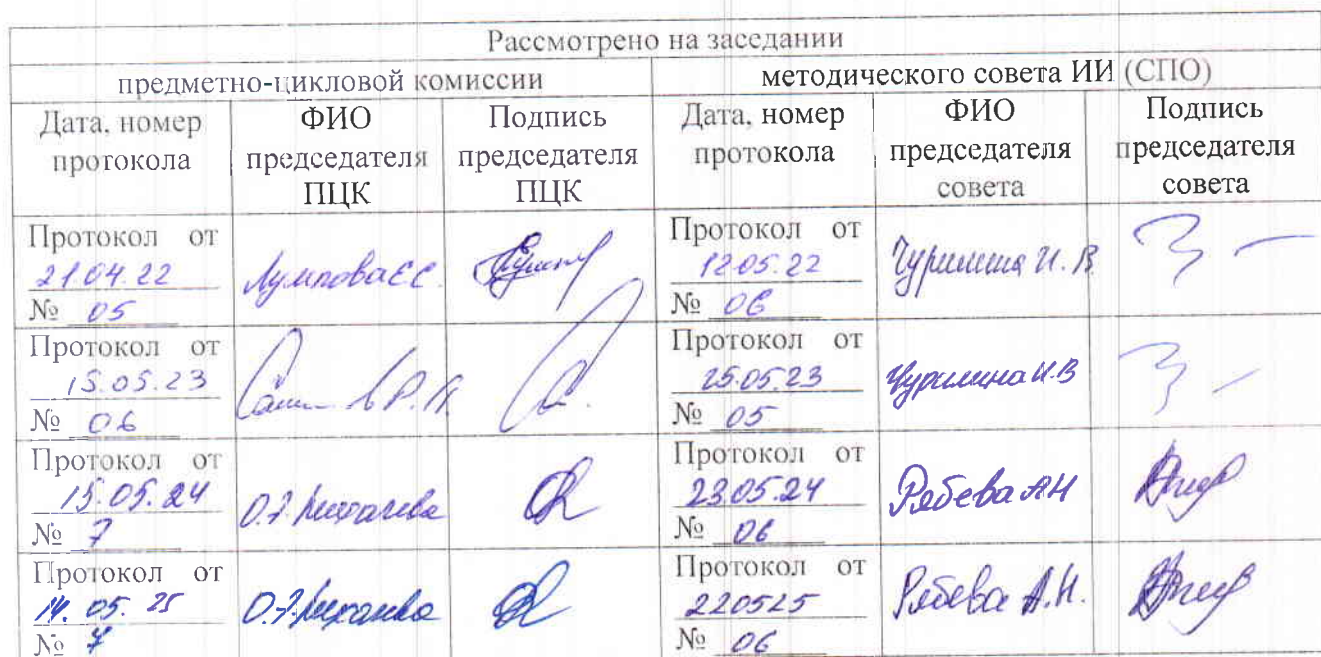 Рассмотрено на заседании
предметно-цикловой комиссии
методического совета ИИ (СПО)
Дата, номер
протокола
ФИО
председателя
ПЦК
Подпись
председателя
ПЦК
Дата, номер
протокола
ФИО
председателя
совета
Подпись
председателя
совета
Протокол от
21.04.22
№ 05
Лумпова Е С
Протокол от
12.05.22
№ 06
Чурилина И. В
Протокол от
15.05.23
№ 06
Протокол от
25.05.23
№ 05
Чурилина И.В
Протокол от
15.05.24
№ 7
Протокол от
23.05.24
№ 06
Рябева АН
Протокол от
14. 05. 25
№ 7
Протокол от
220525
№ 06
Рябева А.Н.